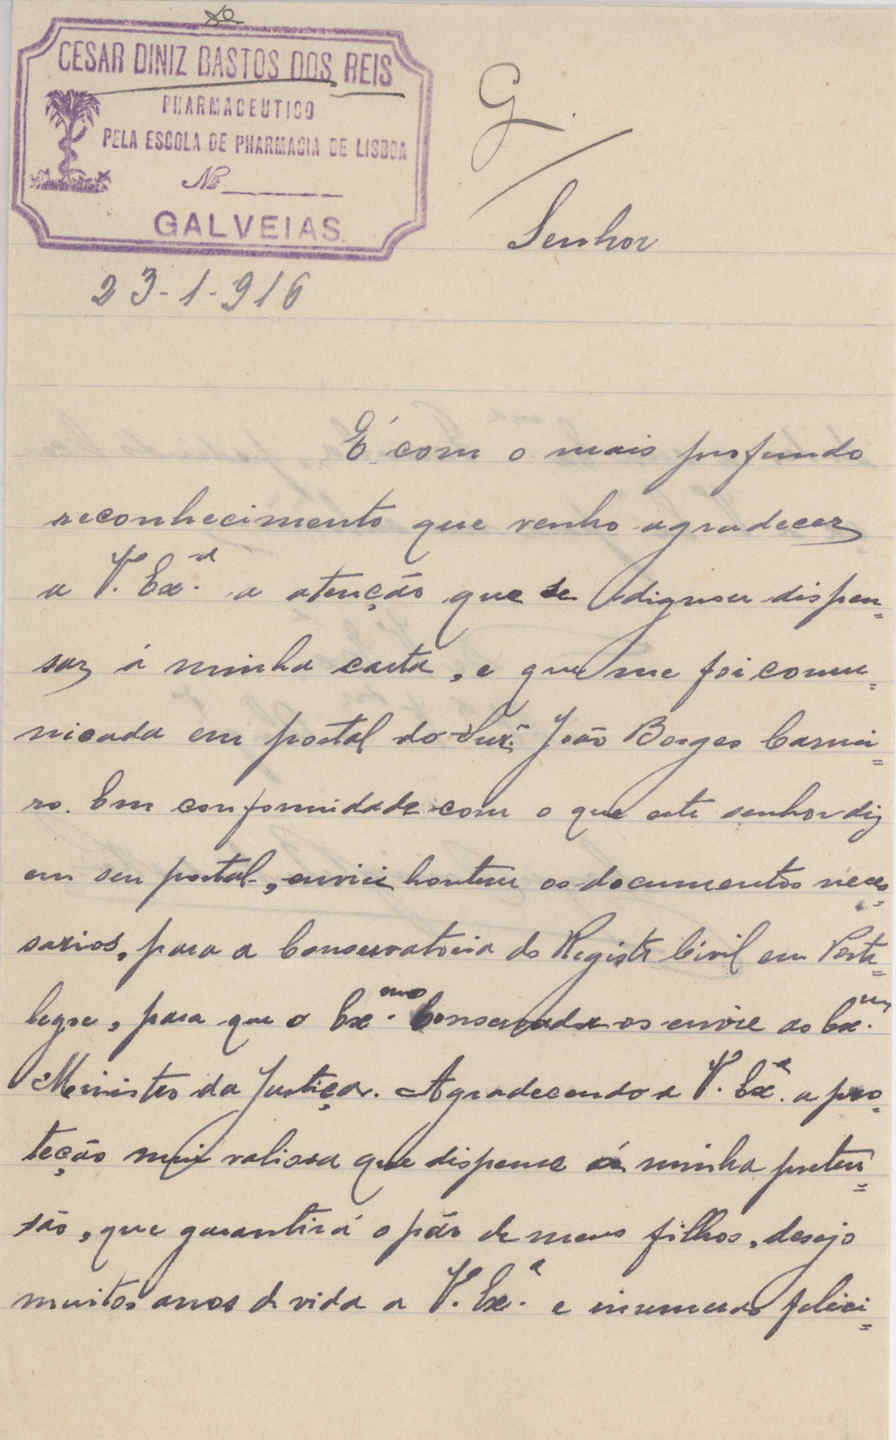 CESAR DINIZ BASTOS DOS REIS
PHARMACEUTICO
PELA ESCOLA DE PHARMACIA DE LISBOA
Nº
GALVEIAS
23-1-916
G.
Senhor
É com o mais profundo
reconhecimento que venho agradecer
a V. Ex.ª a atenção que se dignou dispen=
sar á minha carta, e que me foi comu=
nicada em postal do Snr. João Borges Carnei=
ro. Em conformidade com o que este senhor diz
em seu postal, enviei hontem os documentos neces=
sarios, para a Conservatoria do Registo Civil em Porta=
legre, para que o Ex.mo Conservador os envie ao Ex.mo
Ministro da Justiça. Agradecendo a V. Ex.ª a pro=
teção mui valiosa que dispense á minha preten=
são, que garantirá o pão de meus filhos, desejo
muitos anos de vida a V. Ex.ª e inumeras felici=